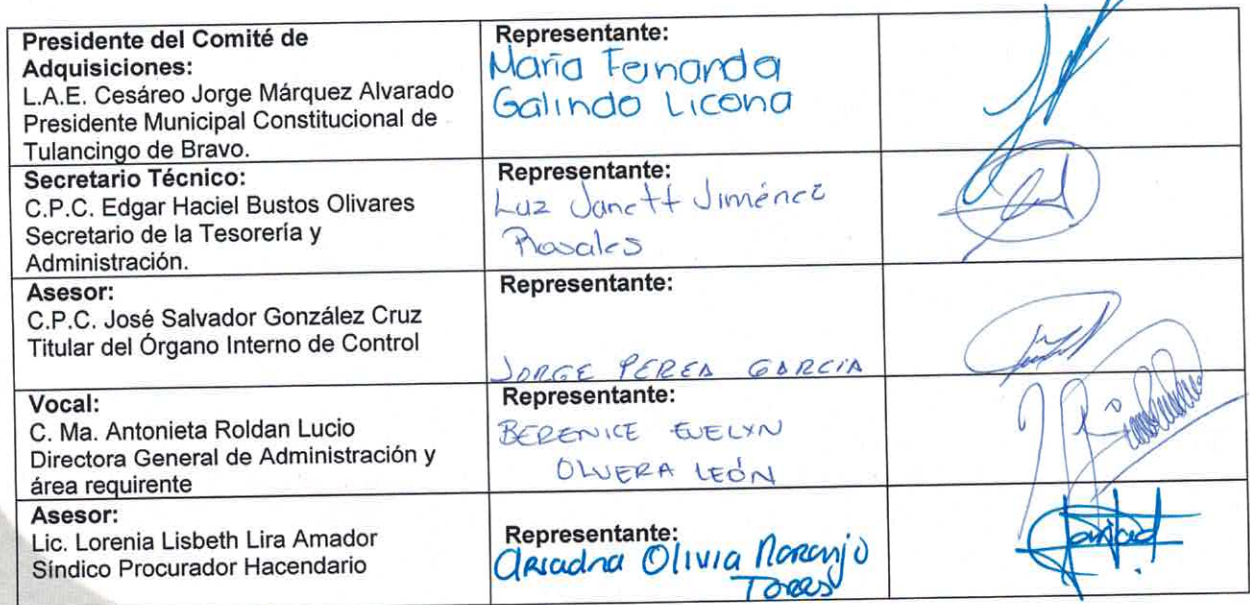 Presidente del Comité de
Adquisiciones:
L.A.E. Cesáreo Jorge Márquez Alvarado
Presidente Municipal Constitucional de
Tulancingo de Bravo.
Representante:
María Fernanda
Galindo Licona
Secretario Técnico:
C.P.C. Edgar Haciel Bustos Olivares
Secretario de la Tesorería y
Administración.
Representante:
Luz Janett Jiménez
Rosales
Asesor:
C.P.C. José Salvador González Cruz
Titular del Órgano Interno de Control
Representante:
JORGE PEREA GARCÍA
Vocal:
C. Ma. Antonieta Roldan Lucio
Directora General de Administración y
área requirente
Representante:
BERENICE EVELYN
OLVERA LEÓN
Asesor:
Lic. Lorenia Lisbeth Lira Amador
Síndico Procurador Hacendario
Representante:
Ariadna Olivia Naranjo
Torres